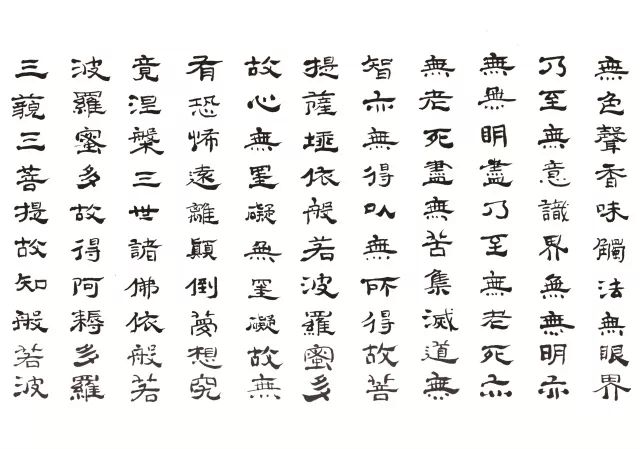 無色聲香味觸法無眼界
乃至無意識界無無明亦
無無明盡乃至無老死亦
無老死盡無苦集滅道無
智亦無得以無所得故菩
提薩埵依般若波羅蜜多
故心無罣礙無罣礙故無
有恐怖遠離顛倒夢想究
竟涅槃三世諸佛依般若
波羅蜜多故得阿耨多羅
三藐三菩提故知般若波